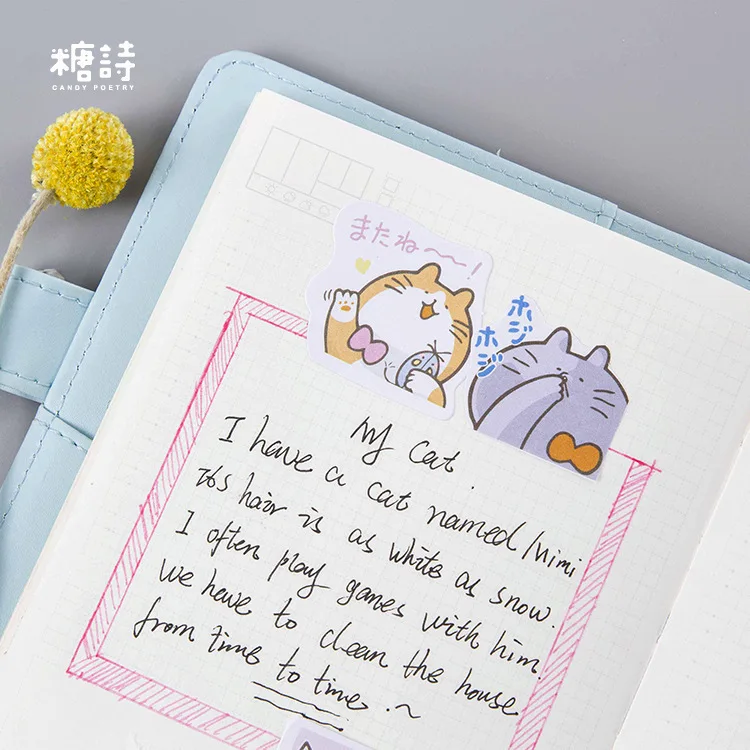 糖詩
CANDY POETRY
またね〜〜!
ホジ
ホジ
My Cat.
I have a cat named Mimi
its hair is as white as snow.
I often play games with him.
we have to clean the house
from time to time. ~